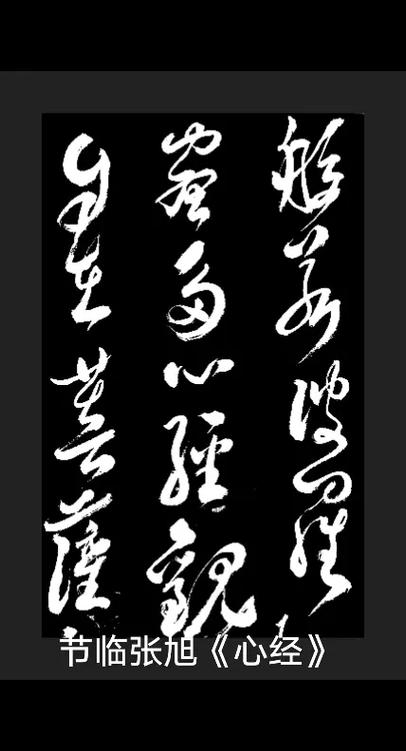 般若波羅
蜜多心經觀
自在菩薩
节临张旭《心经》